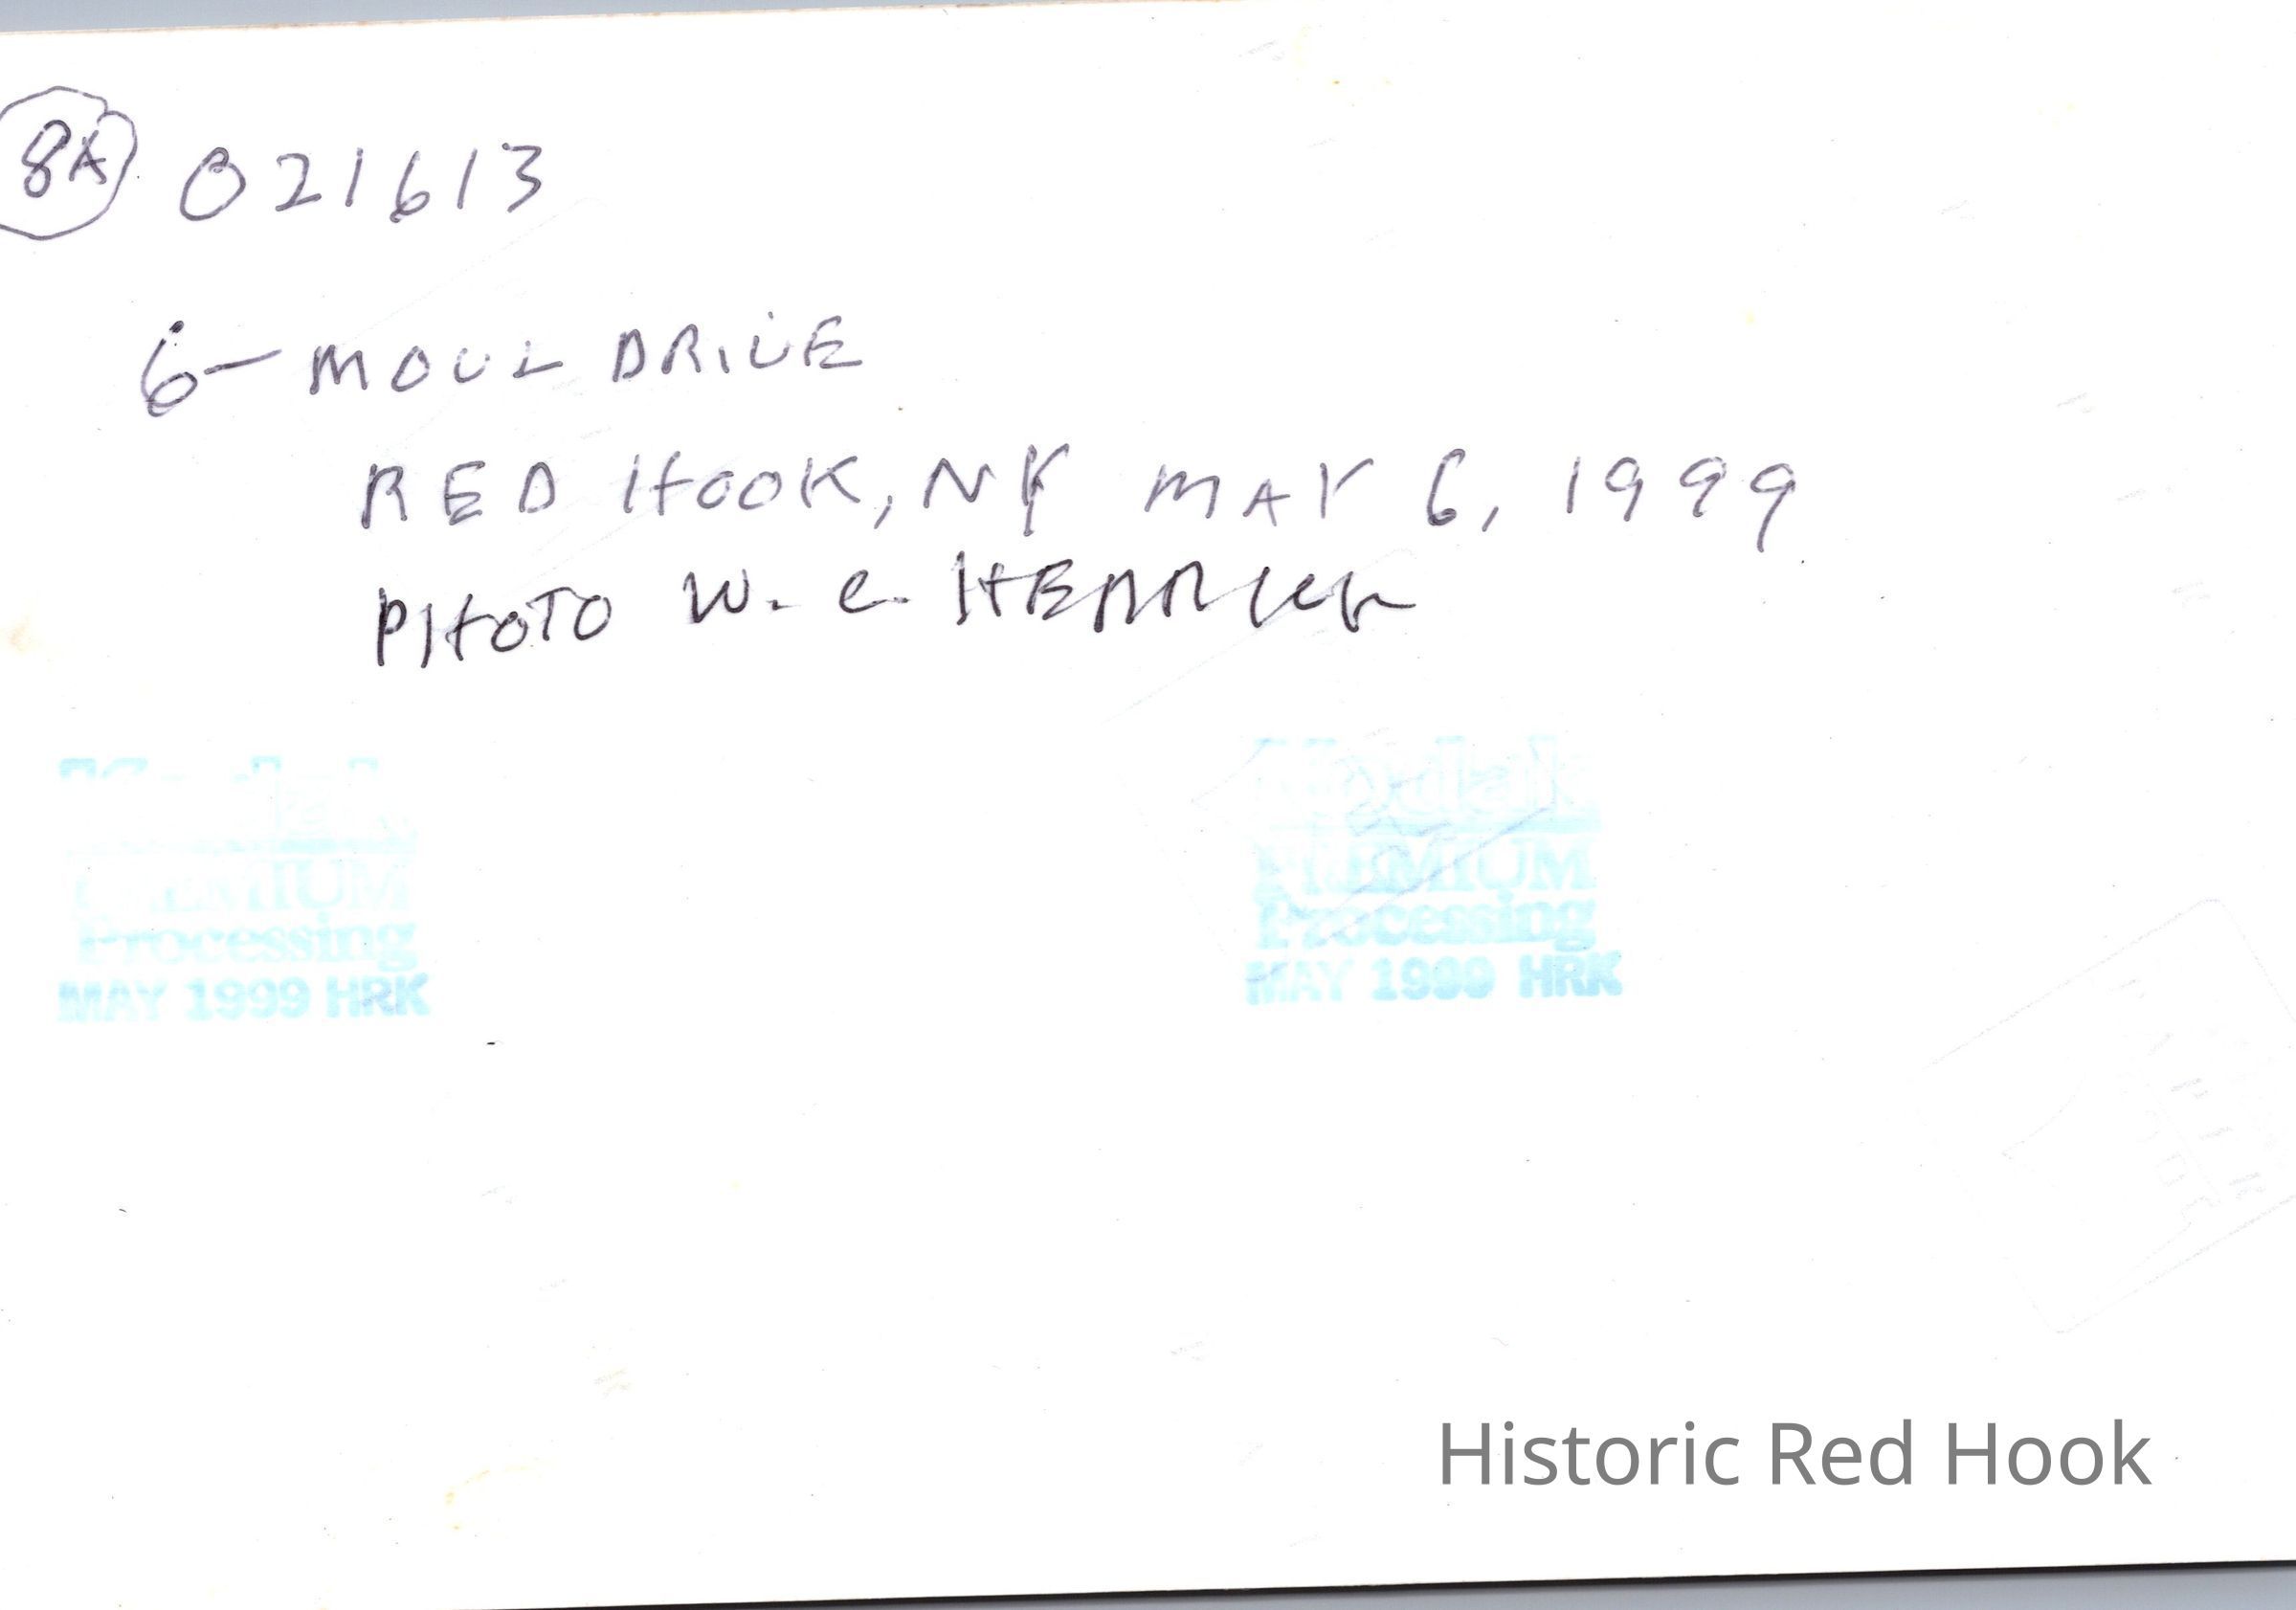 8A 021613
6- MOUL DRIVE
RED HOOK, NY MAY 6, 1999
PHOTO W. C. HERRICK
Kodak
PREMIUM
Processing
MAY 1999 HRK
Kodak
PREMIUM
Processing
MAY 1999 HRK
Historic Red Hook